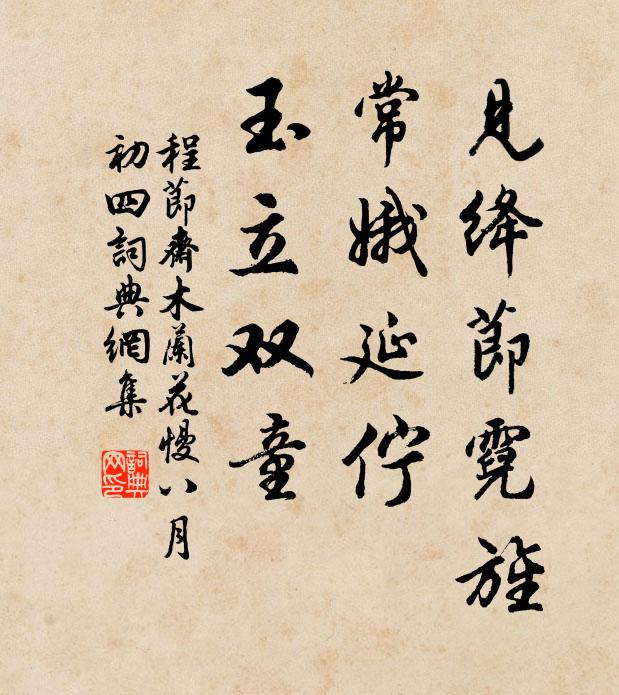 見绛節霓旌
常娥延佇
玉立双童
程節齋木蘭花慢八月
初四詞典網集
詞典網印